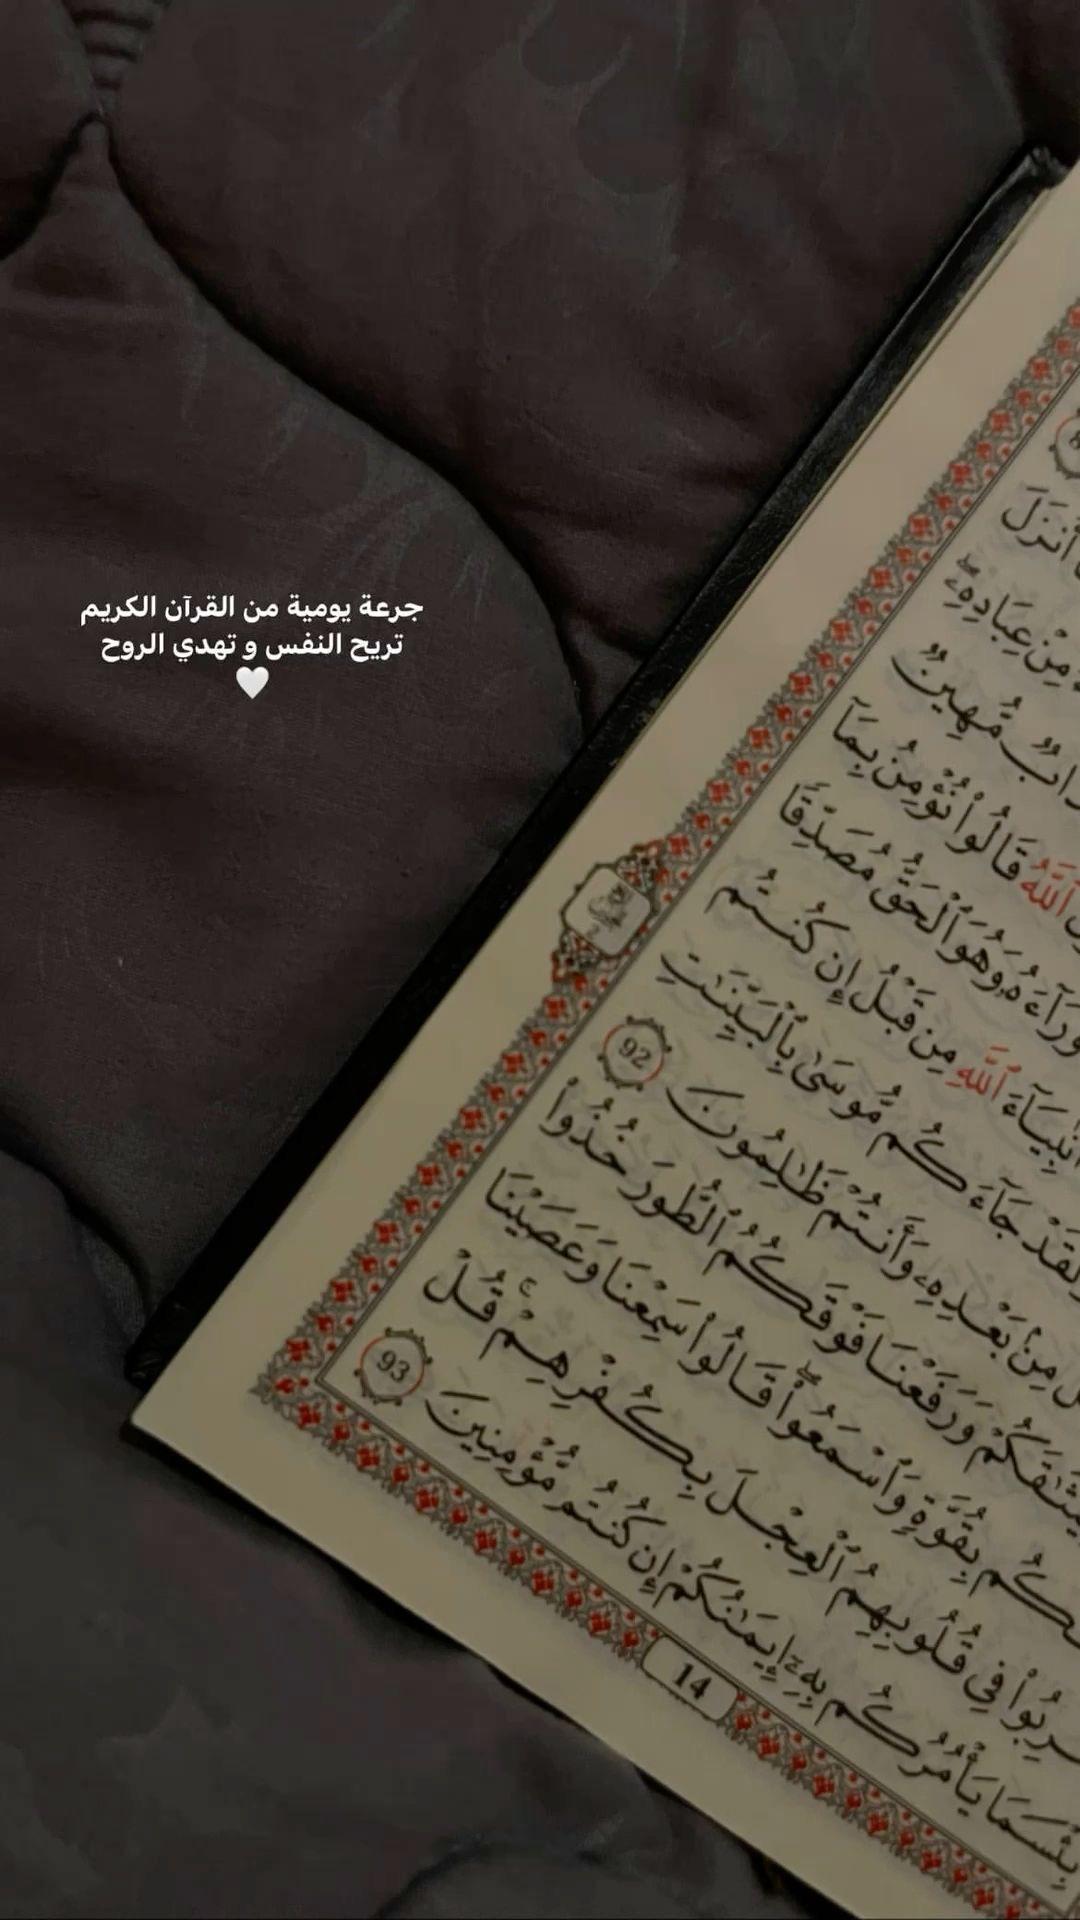 جرعة يومية من القرآن الكريم
تريح النفس و تهدي الروح
🤍
أَنزَلَ
مِنْ عِبَادِهِۦ ۖ
مُّهِينٌ
ٱللَّهُ قَالُوا۟ نُؤْمِنُ بِمَآ
وَرَآءَهُۥ وَهُوَ ٱلْحَقُّ مُصَدِّقًا
أَنۢبِيَآءَ ٱللَّهِ مِن قَبْلُ إِن كُنتُم
جَآءَكُم مُّوسَىٰ بِٱلْبَيِّنَٰتِ
مِنۢ بَعْدِهِۦ وَأَنتُمْ ظَٰلِمُونَ 92
وَرَفَعْنَا فَوْقَكُمُ ٱلطُّورَ خُذُوا۟
بِقُوَّةٍ وَٱسْمَعُوا۟ ۖ قَالُوا۟ سَمِعْنَا وَعَصَيْنَا
فِى قُلُوبِهِمُ ٱلْعِجْلَ بِكُفْرِهِمْ ۚ قُلْ
بِئْسَمَا يَأْمُرُكُم بِهِۦٓ إِيمَٰنُكُمْ إِن كُنتُم مُّؤْمِنِينَ 93
14